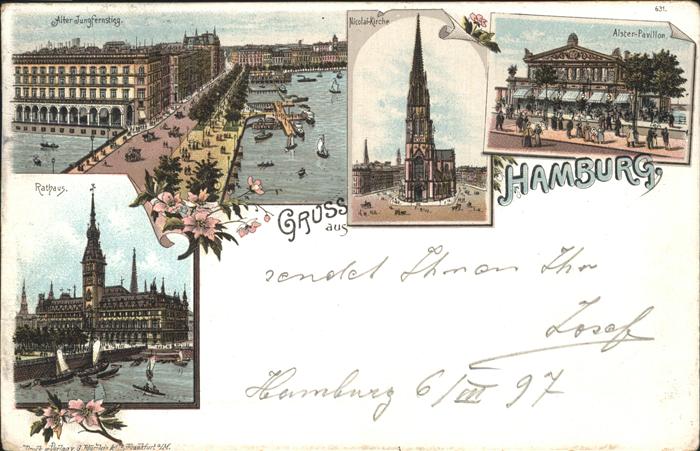 Alter Jungfernstieg.
Nicolai-Kirche
631.
Alster-Pavillon.
Rathaus.
GRUSS
aus
HAMBURG.
sendet Ihnen Ihr
Josef
Hamburg 6/VII 97
Druck u. Verlag v. Frankfurt a/M.